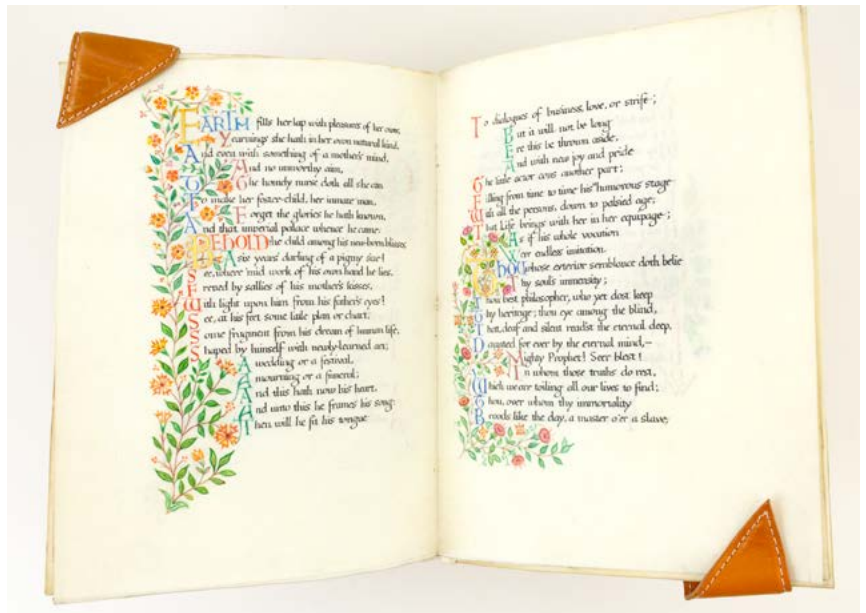 EARTH fills her lap with pleasures of her own;
Yearnings she hath in her own natural kind,
And even with something of a mother's mind,
And no unworthy aim,
The homely nurse doth all she can
To make her foster-child, her inmate man,
Forget the glories he hath known,
And that imperial palace whence he came.
BEHOLD the child among his new-born blisses,
A six years' darling of a pigmy size!
See, where 'mid work of his own hand he lies,
Fretted by sallies of his mother's kisses,
With light upon him from his father's eyes!
See, at his feet some little plan or chart,
Some fragment from his dream of human life,
Shaped by himself with newly-learned art;
A wedding or a festival,
A mourning or a funeral;
And this hath now his heart,
And unto this he frames his song:
Then will he fit his tongue
To dialogues of business, love, or strife;
But it will not be long
Ere this be thrown aside,
And with new joy and pride
The little actor cons another part;
Filling from time to time his "humorous stage"
With all the persons, down to palsied age,
That Life brings with her in her equipage;
As if his whole vocation
Were endless imitation.
Thou, whose exterior semblance doth belie
Thy soul's immensity;
Thou best philosopher, who yet dost keep
Thy heritage; thou eye among the blind,
That, deaf and silent, readst the eternal deep,
Haunted for ever by the eternal mind,—
Mighty Prophet! Seer blest!
On whom those truths do rest,
Which we are toiling all our lives to find;
Thou, over whom thy immortality
Broods like the day, a master o'er a slave,